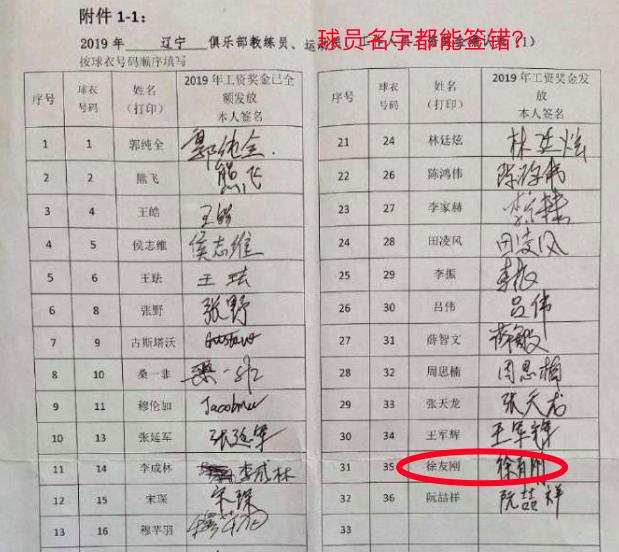 附件 1-1：
球员名字都能签错?
2019 年 辽宁 俱乐部教练员、运动
按球衣号码顺序填写
序号 球衣号码 姓名（打印） 2019 年工资奖金已全额发放 本人签名
1 1 郭纯全 郭纯全
2 2 熊飞 熊飞
3 4 王皓 王皓
4 5 侯志维 侯志维
5 6 王珐 王珐
6 8 张野 张野
7 9 古斯塔沃 Gustavo
8 10 桑一非 桑一非
9 11 穆伦加 Jacobmu
10 13 张延军 张延军
11 14 李成林 李成林
12 15 宋琛 宋琛
13 16 穆芊羽
序号 球衣号码 姓名（打印） 2019 年工资奖金发放 本人签名
21 24 林廷炫 林廷炫
22 26 陈鸿伟 陈鸿伟
23 27 李家赫
24 28 田凌风 田凌风
25 29 李振 李振
26 30 吕伟 吕伟
27 31 薛智文
28 32 周思楠 周思楠
29 33 张天龙 张天龙
30 34 王军辉 王军辉
31 35 徐友刚 徐有刚
32 36 阮喆祥 阮喆祥
33